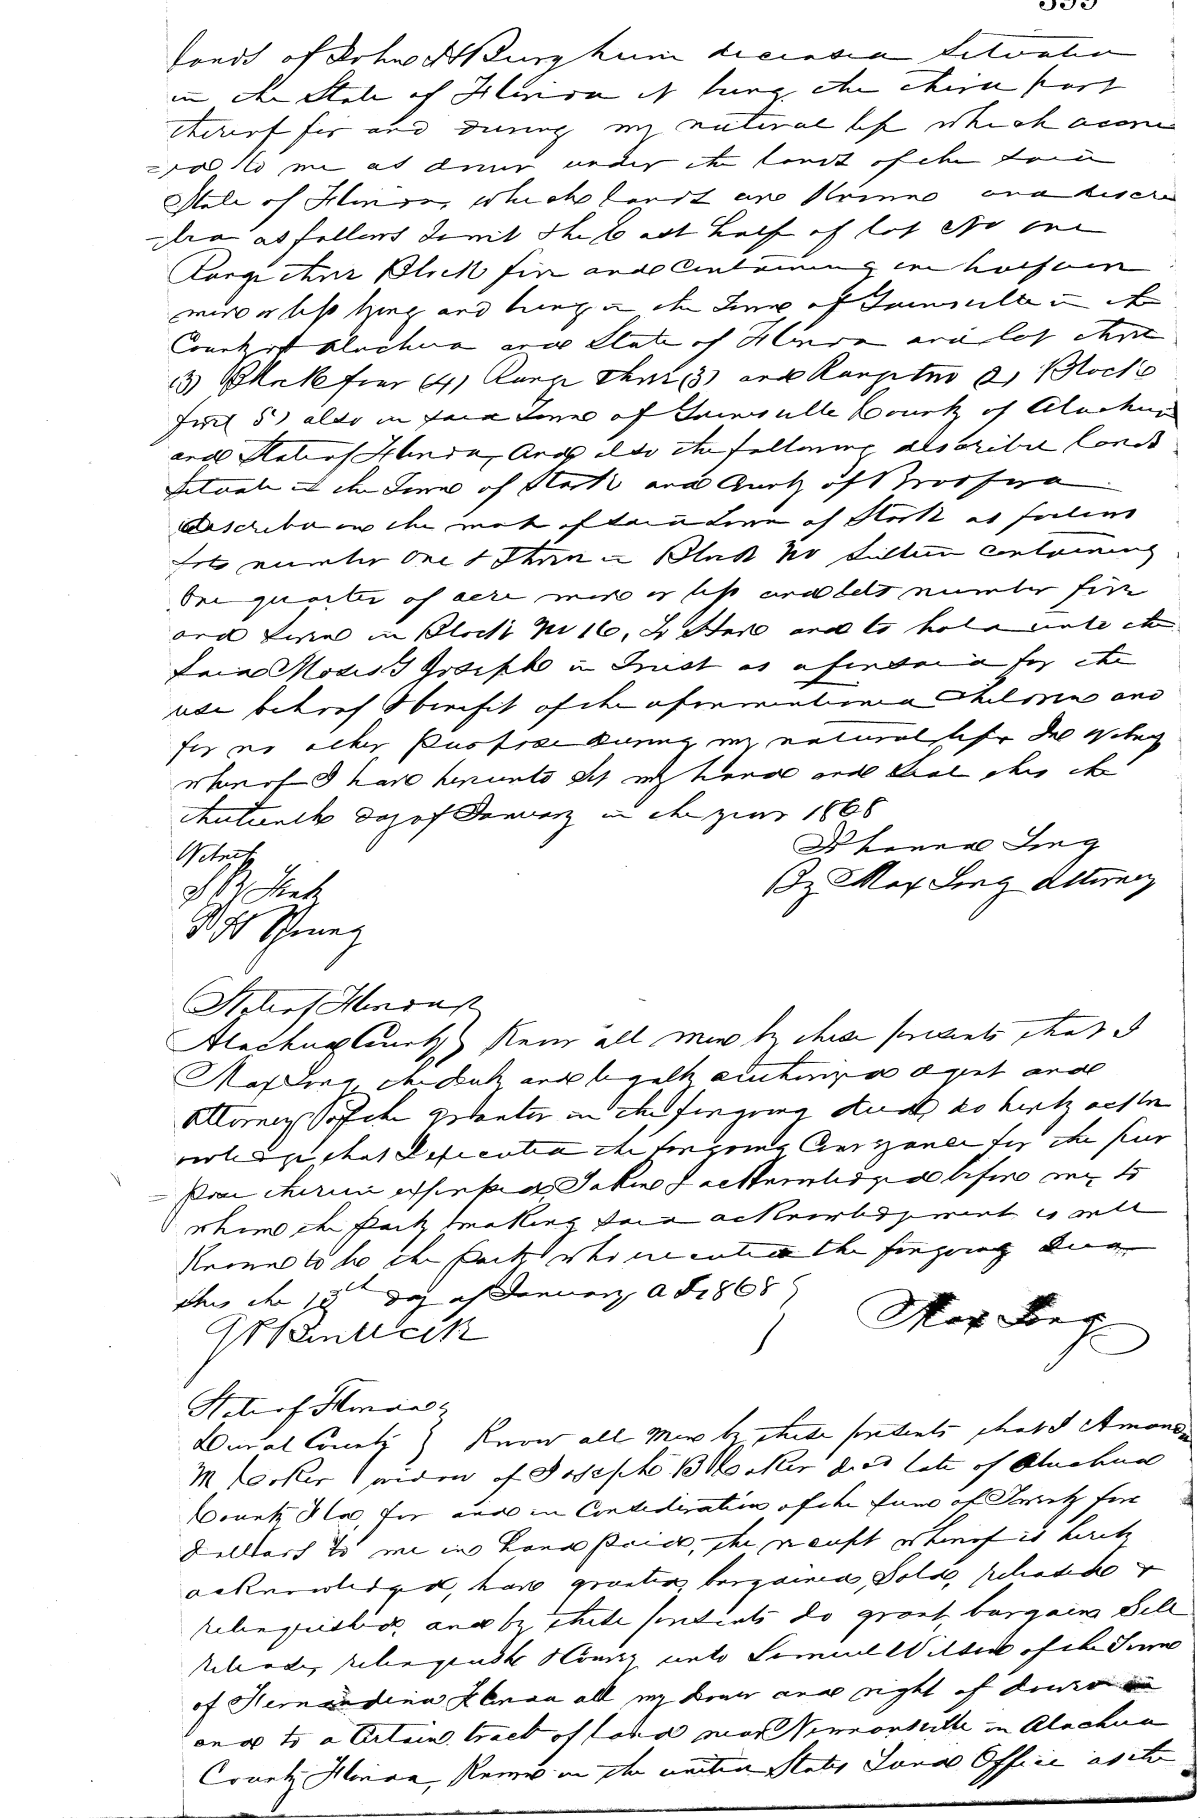 lands of John H Burghuim deceased Situated
in the State of Florida it being the third part
thereof for and during my natural life which accru
=ed to me as dower under the laws of the said
State of Florida, which lands are Known and descri
=bed as follows Towit The East half of lot No one
Range three Block five and containing one half acre
more or less lying and being in the Town of Gainesville in the
County of Alachua and State of Florida and lot three
(3) Block four (4) Range Three (3) and Range two (2) Block
five 5) also in said Town of Gainesville County of Alachua
and State of Florida, And also the following described lands
situate in the Town of Stark and County of Bradford
described on the map of said Town of Stark as follows
lots number One & Three in Block No Sixteen containing
One quarter of acre more or less and lots number five
and seven in Block No 16, To Have and to hold unto the
said Moses J Joseph in Trust as aforesaid for the
use behoof & benefit of the aforementioned Children and
for no other purpose during my natural life In Witness
whereof I have hereunto set my hand and seal this the
thirteenth day of January in the year 1868
Johanna Long
Witness
By Max Long Attorney
State of Florida
Alachua County } Know all Men by these presents that I
Max Long, the duly and legally authorized agent and
Attorney of the grantor in the foregoing deed do hereby ackn
owledge that I executed the foregoing Conveyance for the pur
=pose therein expressed, Taken & acknowledged before me to
whom the party making said acknowledgment is well
Known to be the party who executed the foregoing Deed
this the 13th day of January A D 1868
Max Long
State of Florida
Duval County } Know all Men by these presents that I Amanda
M Coker widow of Joseph B Coker decd late of Alachua
County Fla, for and in Consideration of the sum of Twenty five
dollars to me in hand paid, the receipt whereof is hereby
acknowledged, have granted, bargained, Sold, released &
relinquished, and by these presents do grant, bargain Sell
release, relinquish & Convey unto Samuel Wilson of the Town
of Fernandina Florida all my dower and right of dower in
and to a Certain tract of land near Newnansville in Alachua
County Florida, Known in the united States Land Office as the